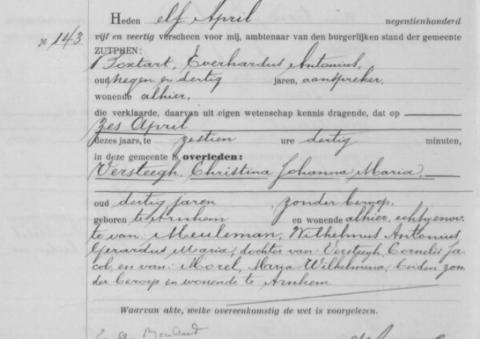 Heden elf April negentienhonderd
No 143. vijf en veertig verscheen voor mij, ambtenaar van den burgerlijken stand der gemeente
ZUTPHEN:
Toxtart, Everhardus Antonius,
oud negen en dertig jaren, aanspreker,
wonende alhier,
die verklaarde, daarvan uit eigen wetenschap kennis dragende, dat op
zes April
dezes jaars, te zestien ure dertig minuten,
in deze gemeente is overleden:
Versteegh, Christina Johanna Maria,
oud dertig jaren, zonder beroep,
geboren te Arnhem en wonende alhier, echtgenoo-
te van Meuleman, Wilhelmus Antonius
Gerardus Maria; dochter van Versteegh, Cornelis Ja-
cob, en van Morel, Maria Wilhelmina, beiden zon-
der beroep en wonende te Arnhem
Waarvan akte, welke overeenkomstig de wet is voorgelezen.